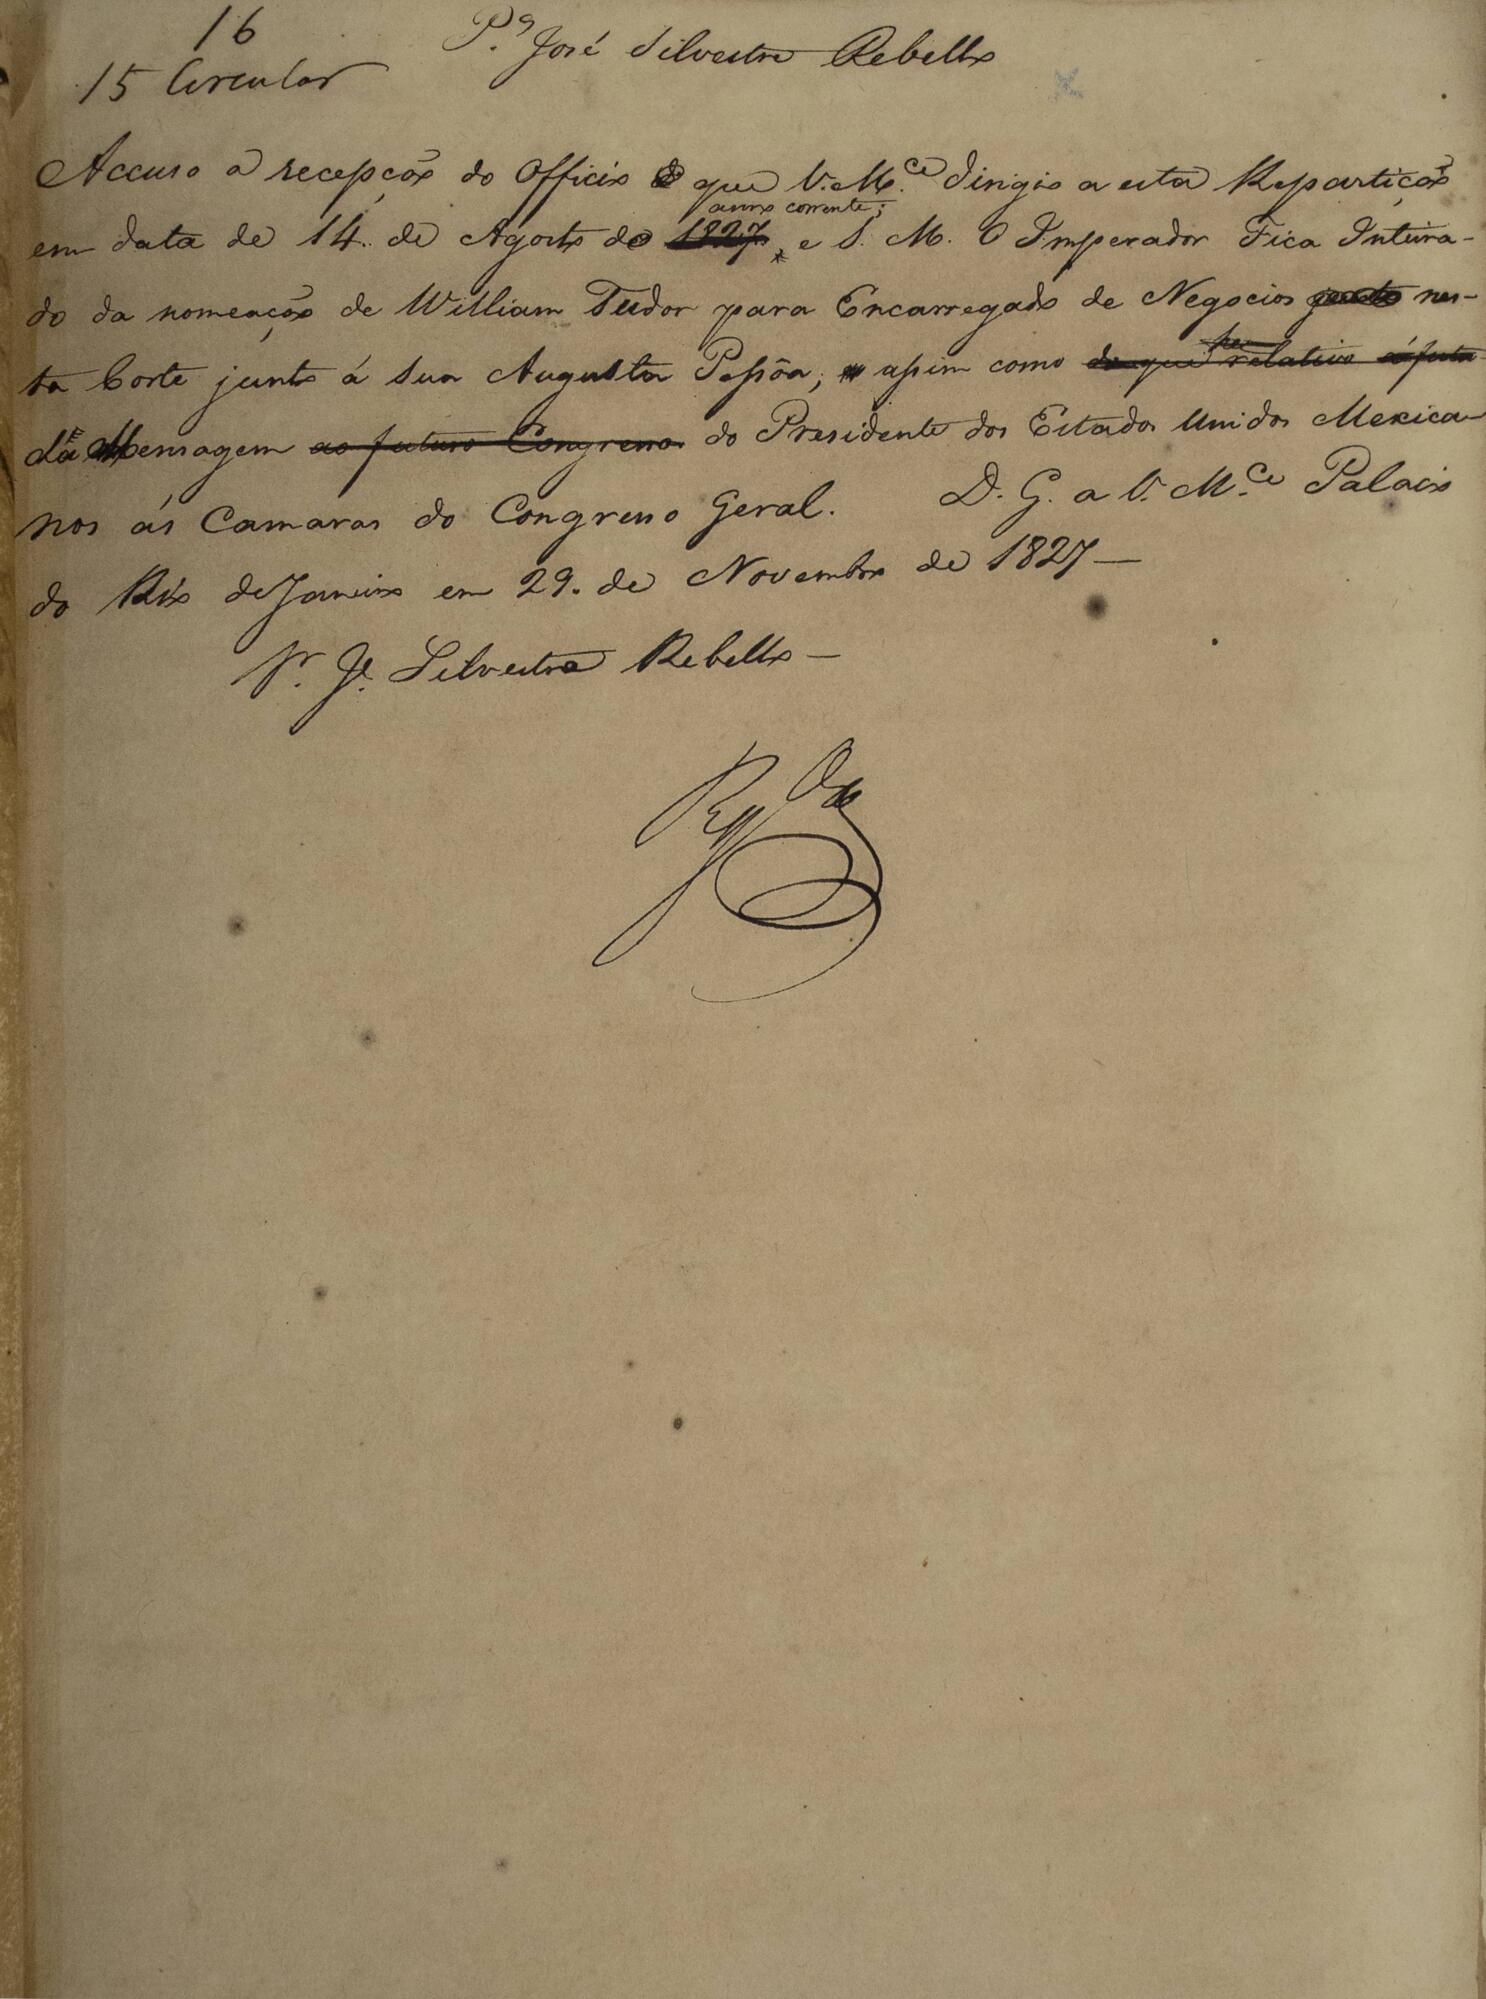 16
15 Circular
P.ª José Silvestre Rebello
Accuso a recepção do Officio que V. M.ce dirigio a esta Repartição
anno corrente;
em data de 14. de Agosto do 1827, e S. M. O Imperador Fica Inteira-
do da nomeação de William Tudor para Encarregado de Negocios nes-
ta Corte junto á Sua Augusta Pessôa; assim como do que relativo á futu
da Mensagem ao futuro Congresso do Presidente dos Estados Unidos Mexica-
nos ás Camaras do Congresso Geral. D. G. a V. M.ce Palacio
do Rio de Janeiro em 29. de Novembro de 1827 —
Sr. Jé. Silvestre Rebello —